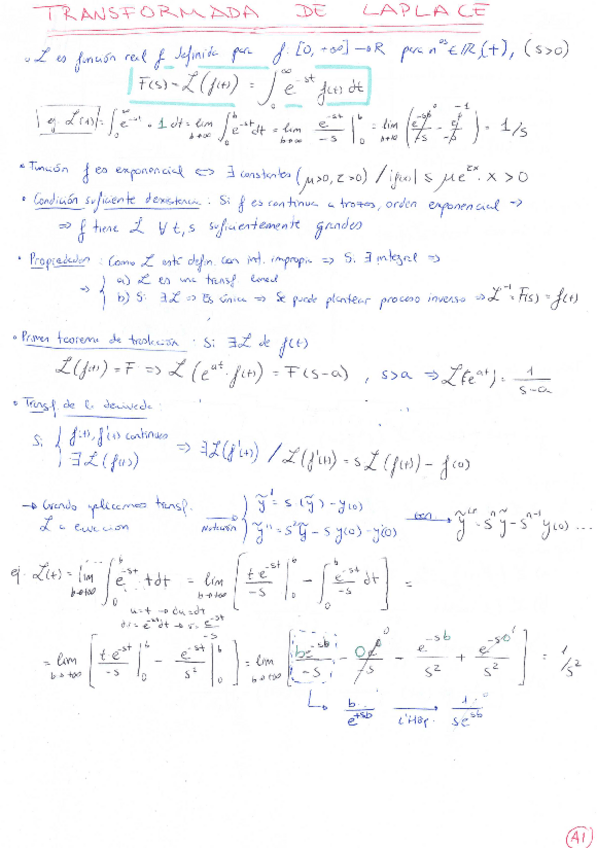 TRANSFORMADA DE LAPLACE
• ℒ es función real f definida para f: [0, +∞] → R para nºs ∈ ℝ (+), (s>0)
F(s) = ℒ(f(t)) = ∫₀^∞ e^{-st} f(t) dt
ej. ℒ(1) = ∫₀^∞ e^{-st} · 1 dt = lim_{b→∞} ∫₀^b e^{-st} dt = lim_{b→∞} e^{-st}/-s |₀^b = lim_{b→+∞} (e^{-sb}/-s - e^0/-s) = 1/s
• Función f es exponencial ⟺ ∃ constantes (μ>0, τ>0) / |f(x)| ≤ μe^{τx} · x > 0
• Condición suficiente de existencia: Si f es continua a trozos, orden exponencial →
⇒ f tiene ℒ ∀ t, s suficientemente grandes
• Propiedades: Como ℒ está defin. con int. impropia ⇒ Si ∃ integral ⇒
⇒ { a) ℒ es una transf lineal
b) Si ∃ℒ ⇒ Es única ⇒ Se puede plantear proceso inverso ⇒ ℒ^{-1} = F(s) = f(t)
• Primer teorema de traslación: Si ∃ℒ de f(t)
ℒ(f(t)) = F ⇒ ℒ(e^{at} · f(t)) = F(s-a), s>a ⇒ ℒ(e^{at}) = 1/(s-a)
• Transf. de la derivada:
Si { f(t), f'(t) continuas
∃ℒ(f(t))
⇒ ∃ℒ(f'(t)) / ℒ(f'(t)) = sℒ(f(t)) - f(0)
→ Cuando aplicamos transf.
ℒ a ecuación
Notación { ỹ' = s(ỹ) - y(0)
ỹ'' = s²ỹ - sy(0) - y'(0)
ỹⁿ = sⁿỹ - s^{n-1}y(0) ...
ej. ℒ(t) = lim_{b→+∞} ∫₀^b e^{-st} t dt = lim_{b→+∞} [ t e^{-st}/-s |₀^b - ∫₀^b e^{-st}/-s dt ] =
u = t → du = dt
dv = e^{-st} dt → v = e^{-st}/-s
= lim_{b→+∞} [ t·e^{-st}/-s |₀^b - e^{-st}/s² |₀^b ] = lim_{b→+∞} [ be^{-sb}/-s - 0e^0/-s - e^{-sb}/s² + e^{-s0}/s² ] = 1/s²
b/e^{+sb} → L'Hôp. 1/se^{sb}
A1